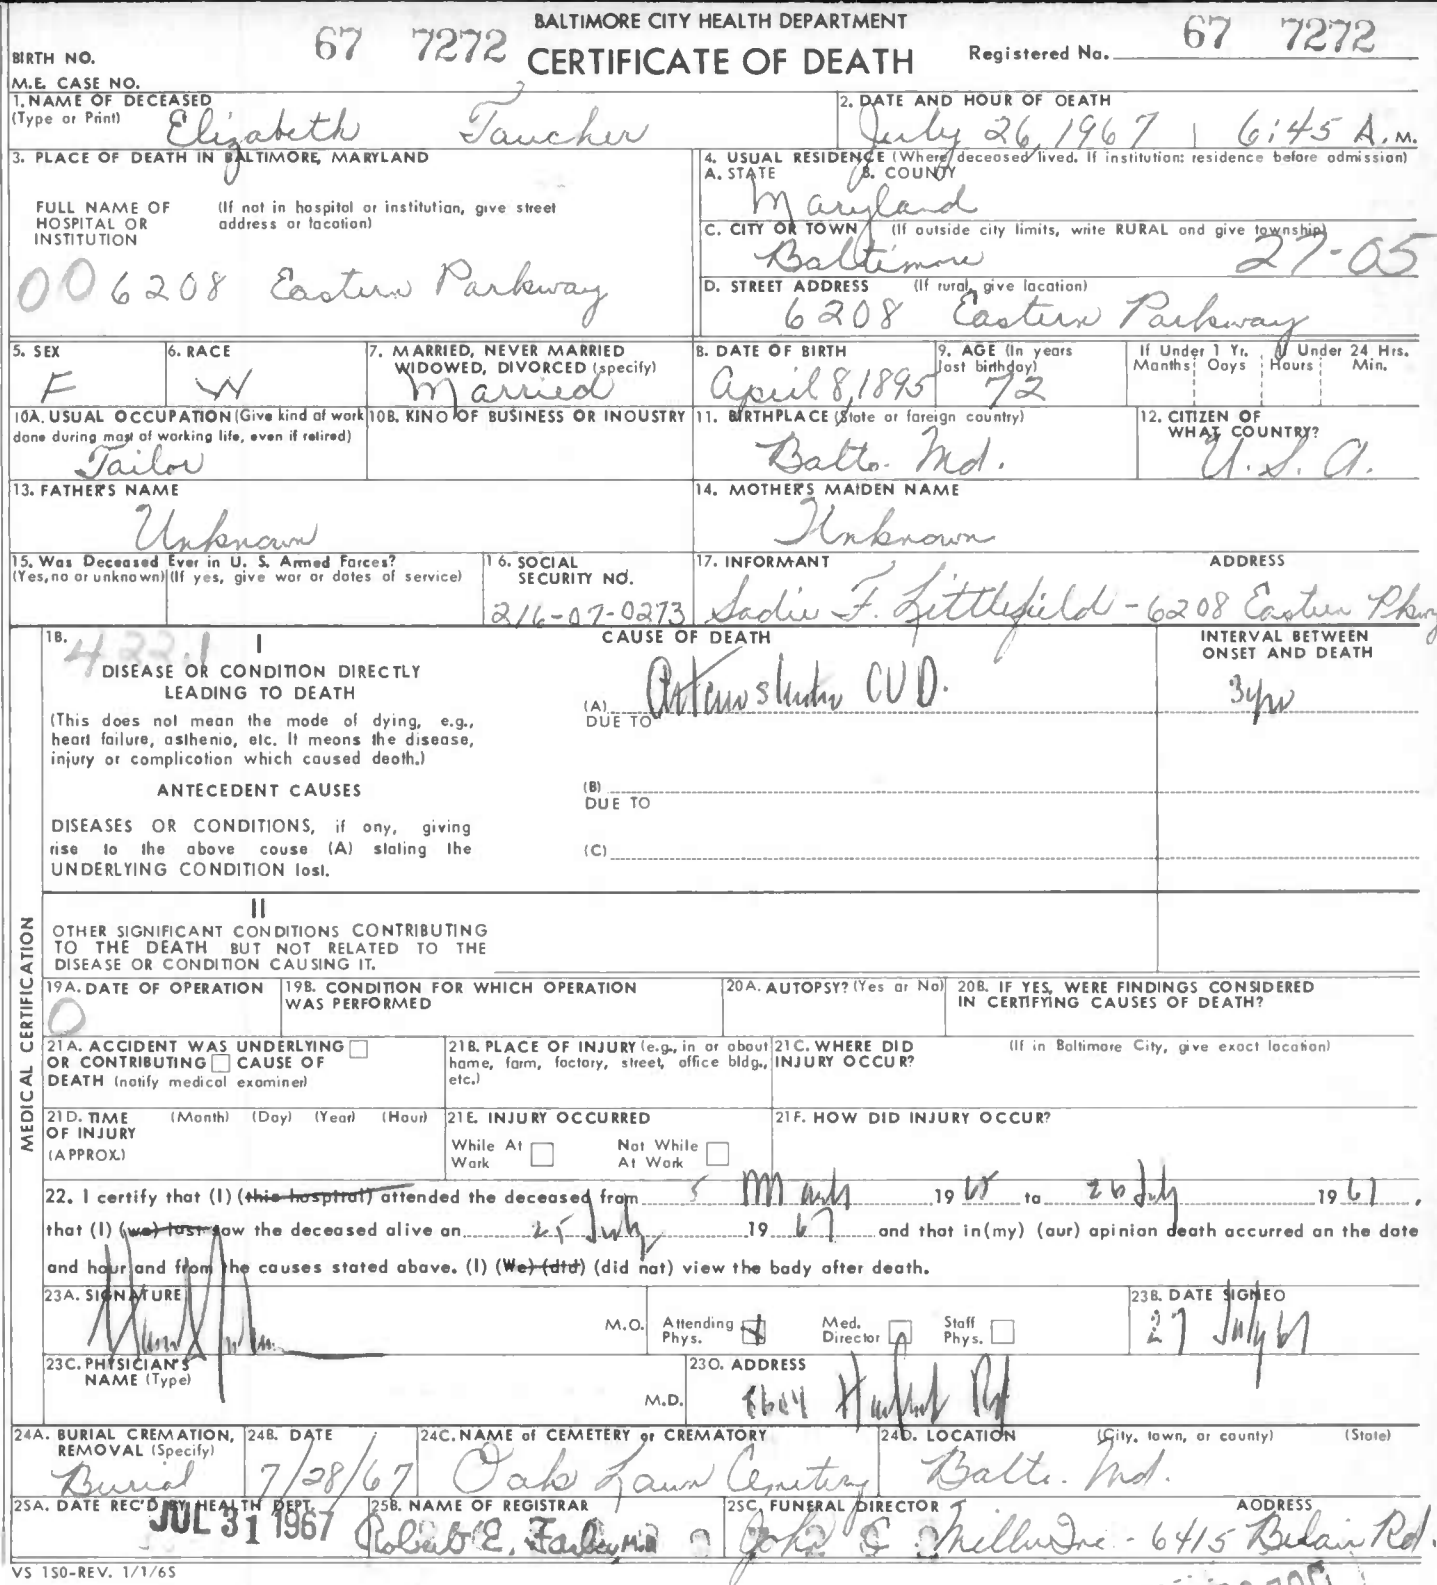 BALTIMORE CITY HEALTH DEPARTMENT
CERTIFICATE OF DEATH
BIRTH NO. 67 7272
Registered No. 67 7272
M.E. CASE NO.
1. NAME OF DECEASED
(Type or Print) Elizabeth Taucher
2. DATE AND HOUR OF DEATH
July 26, 1967 6:45 A.M.
3. PLACE OF DEATH IN BALTIMORE, MARYLAND
FULL NAME OF HOSPITAL OR INSTITUTION
(If not in hospital or institution, give street address or location)
00 6208 Eastern Parkway
4. USUAL RESIDENCE (Where deceased lived. If institution: residence before admission)
A. STATE B. COUNTY
Maryland
C. CITY OR TOWN (If outside city limits, write RURAL and give township)
Baltimore 27-05
D. STREET ADDRESS (If rural, give location)
6208 Eastern Parkway
5. SEX
F
6. RACE
W
7. MARRIED, NEVER MARRIED
WIDOWED, DIVORCED (specify)
Married
8. DATE OF BIRTH
April 8, 1895
9. AGE (In years last birthday)
72
If Under 1 Yr. If Under 24 Hrs.
Months Days Hours Min.
10A. USUAL OCCUPATION (Give kind of work done during most of working life, even if retired)
Tailor
10B. KIND OF BUSINESS OR INDUSTRY
11. BIRTHPLACE (State or foreign country)
Balto. Md.
12. CITIZEN OF WHAT COUNTRY?
U.S.A.
13. FATHER'S NAME
Unknown
14. MOTHER'S MAIDEN NAME
Unknown
15. Was Deceased Ever in U. S. Armed Forces?
(Yes, no or unknown) (If yes, give war or dates of service)
16. SOCIAL SECURITY NO.
216-07-0273
17. INFORMANT ADDRESS
Sadie F. Littlefield - 6208 Eastern Pkwy
MEDICAL CERTIFICATION
18. 422.1 I
DISEASE OR CONDITION DIRECTLY
LEADING TO DEATH
(This does not mean the mode of dying, e.g.,
heart failure, asthenia, etc. It means the disease,
injury or complication which caused death.)
ANTECEDENT CAUSES
DISEASES OR CONDITIONS, if any, giving
rise to the above cause (A) stating the
UNDERLYING CONDITION last.
CAUSE OF DEATH
(A) CVD.
DUE TO
(B)
DUE TO
(C)
INTERVAL BETWEEN
ONSET AND DEATH
3 yrs
II
OTHER SIGNIFICANT CONDITIONS CONTRIBUTING
TO THE DEATH BUT NOT RELATED TO THE
DISEASE OR CONDITION CAUSING IT.
19A. DATE OF OPERATION
0
19B. CONDITION FOR WHICH OPERATION
WAS PERFORMED
20A. AUTOPSY? (Yes or No)
20B. IF YES, WERE FINDINGS CONSIDERED
IN CERTIFYING CAUSES OF DEATH?
21A. ACCIDENT WAS UNDERLYING
OR CONTRIBUTING CAUSE OF
DEATH (notify medical examiner)
21B. PLACE OF INJURY (e.g., in or about
home, farm, factory, street, office bldg.,
etc.)
21C. WHERE DID
INJURY OCCUR?
(If in Baltimore City, give exact location)
21D. TIME (Month) (Day) (Year) (Hour)
OF INJURY
(APPROX.)
21E. INJURY OCCURRED
While At Work
Not While At Work
21F. HOW DID INJURY OCCUR?
22. I certify that (I) (this hospital) attended the deceased from 5 March 1965 to 26 July 1967,
that (I) (we) last saw the deceased alive on 25 July 1967 and that in (my) (our) opinion death occurred on the date
and hour and from the causes stated above. (I) (We) (did) (did not) view the body after death.
23A. SIGNATURE
M.D.
Attending Phys.
Med. Director
Staff Phys.
23B. DATE SIGNED
27 July 67
23C. PHYSICIAN'S
NAME (Type)
M.D.
23D. ADDRESS
Harford Rd
24A. BURIAL CREMATION,
REMOVAL (Specify)
Burial
24B. DATE
7/28/67
24C. NAME of CEMETERY or CREMATORY
Oak Lawn Cemetery
24D. LOCATION (City, town, or county) (State)
Balto. Md.
25A. DATE REC'D BY HEALTH DEPT.
JUL 31 1967
25B. NAME OF REGISTRAR
Robert E. Farber, M.D.
25C. FUNERAL DIRECTOR ADDRESS
John C. Miller Inc - 6415 Belair Rd.
VS 150-REV. 1/1/65